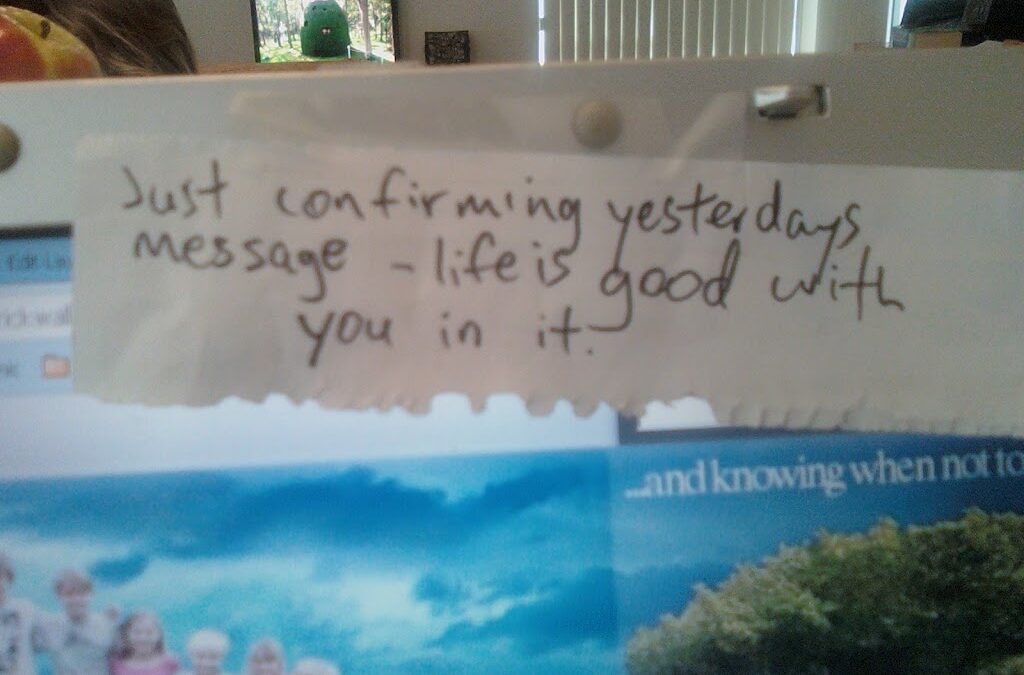 Just confirming yesterdays
message - life is good with
you in it.
Edit
...and knowing when not to